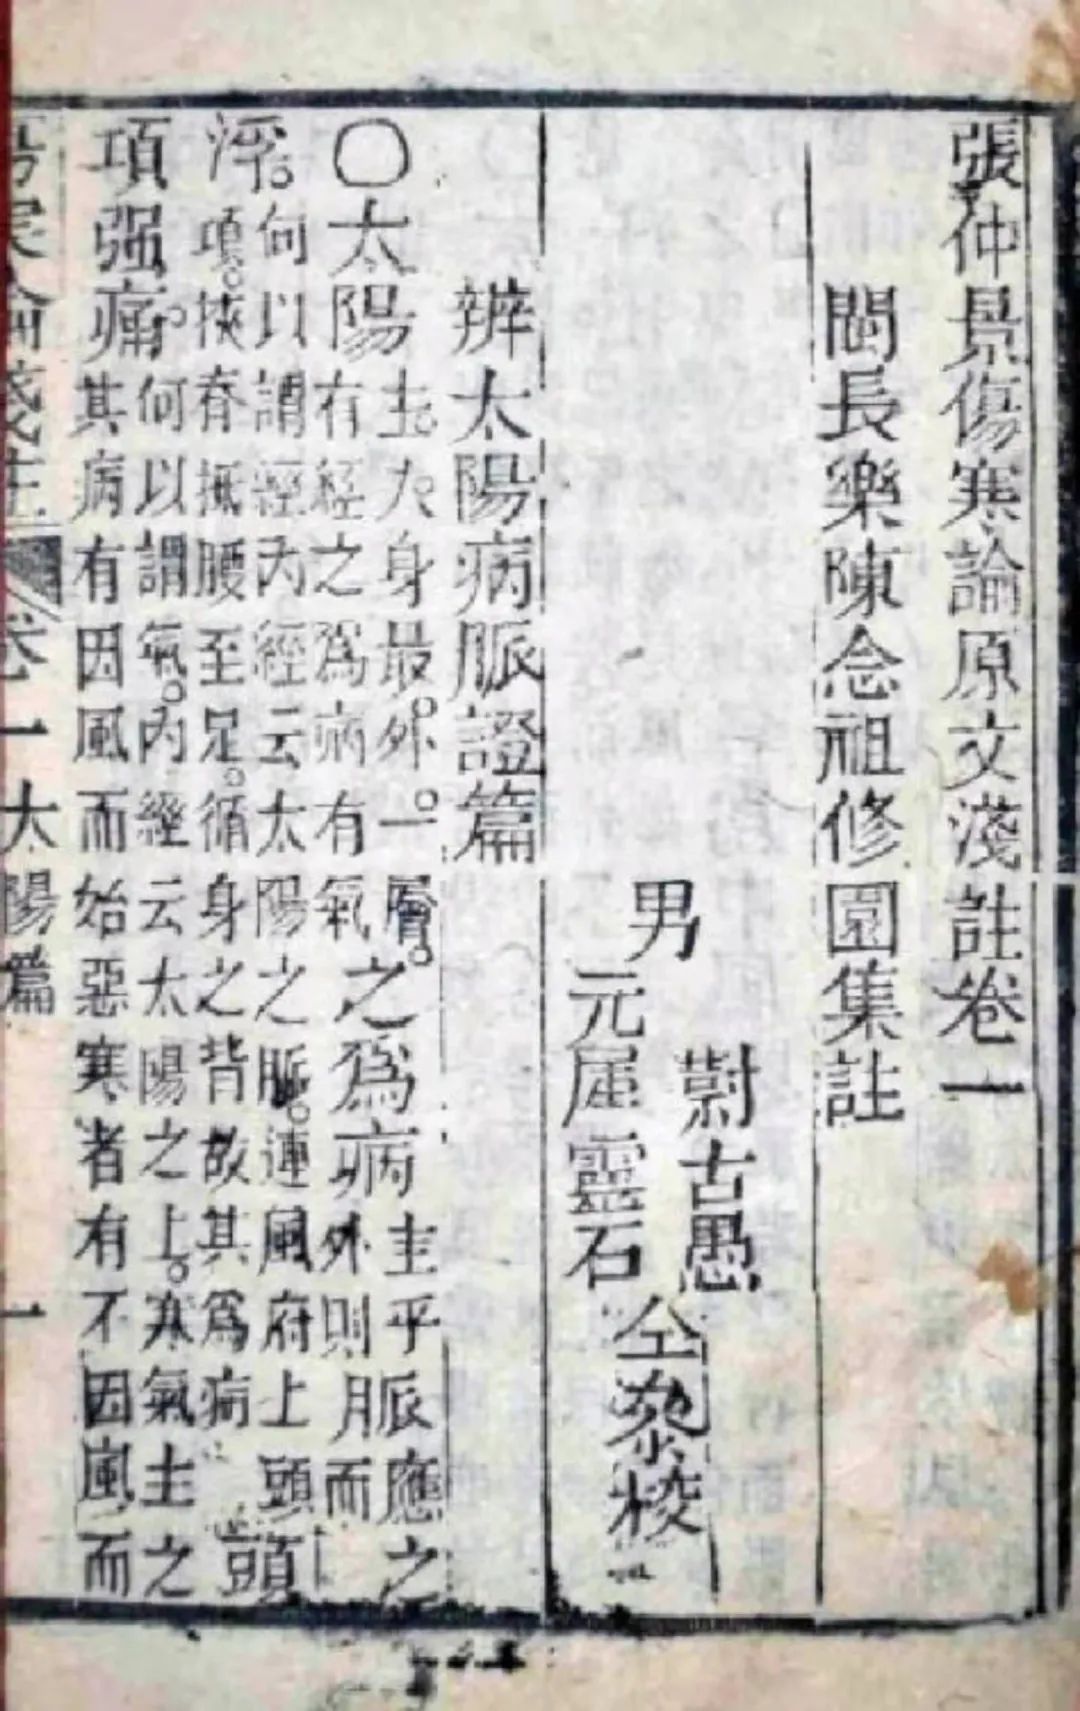 張仲景傷寒論原文淺註卷一
閩長樂陳念祖修園集註
男
蔚古愚
元犀靈石
仝叅校
辨太陽病脈證篇
〇太陽主人身最。外。一層。有經之爲病有氣之爲病主乎脈應之外則月而
浮。何以謂經內經云太陽之脈。連風府上頭項。挾脊抵腰至足。循身之背故其爲病頭
項强痛。何以謂氣。內經云太陽之上。寒氣主之其病有因風而始惡寒者有不因風而
卷一 太陽篇 一